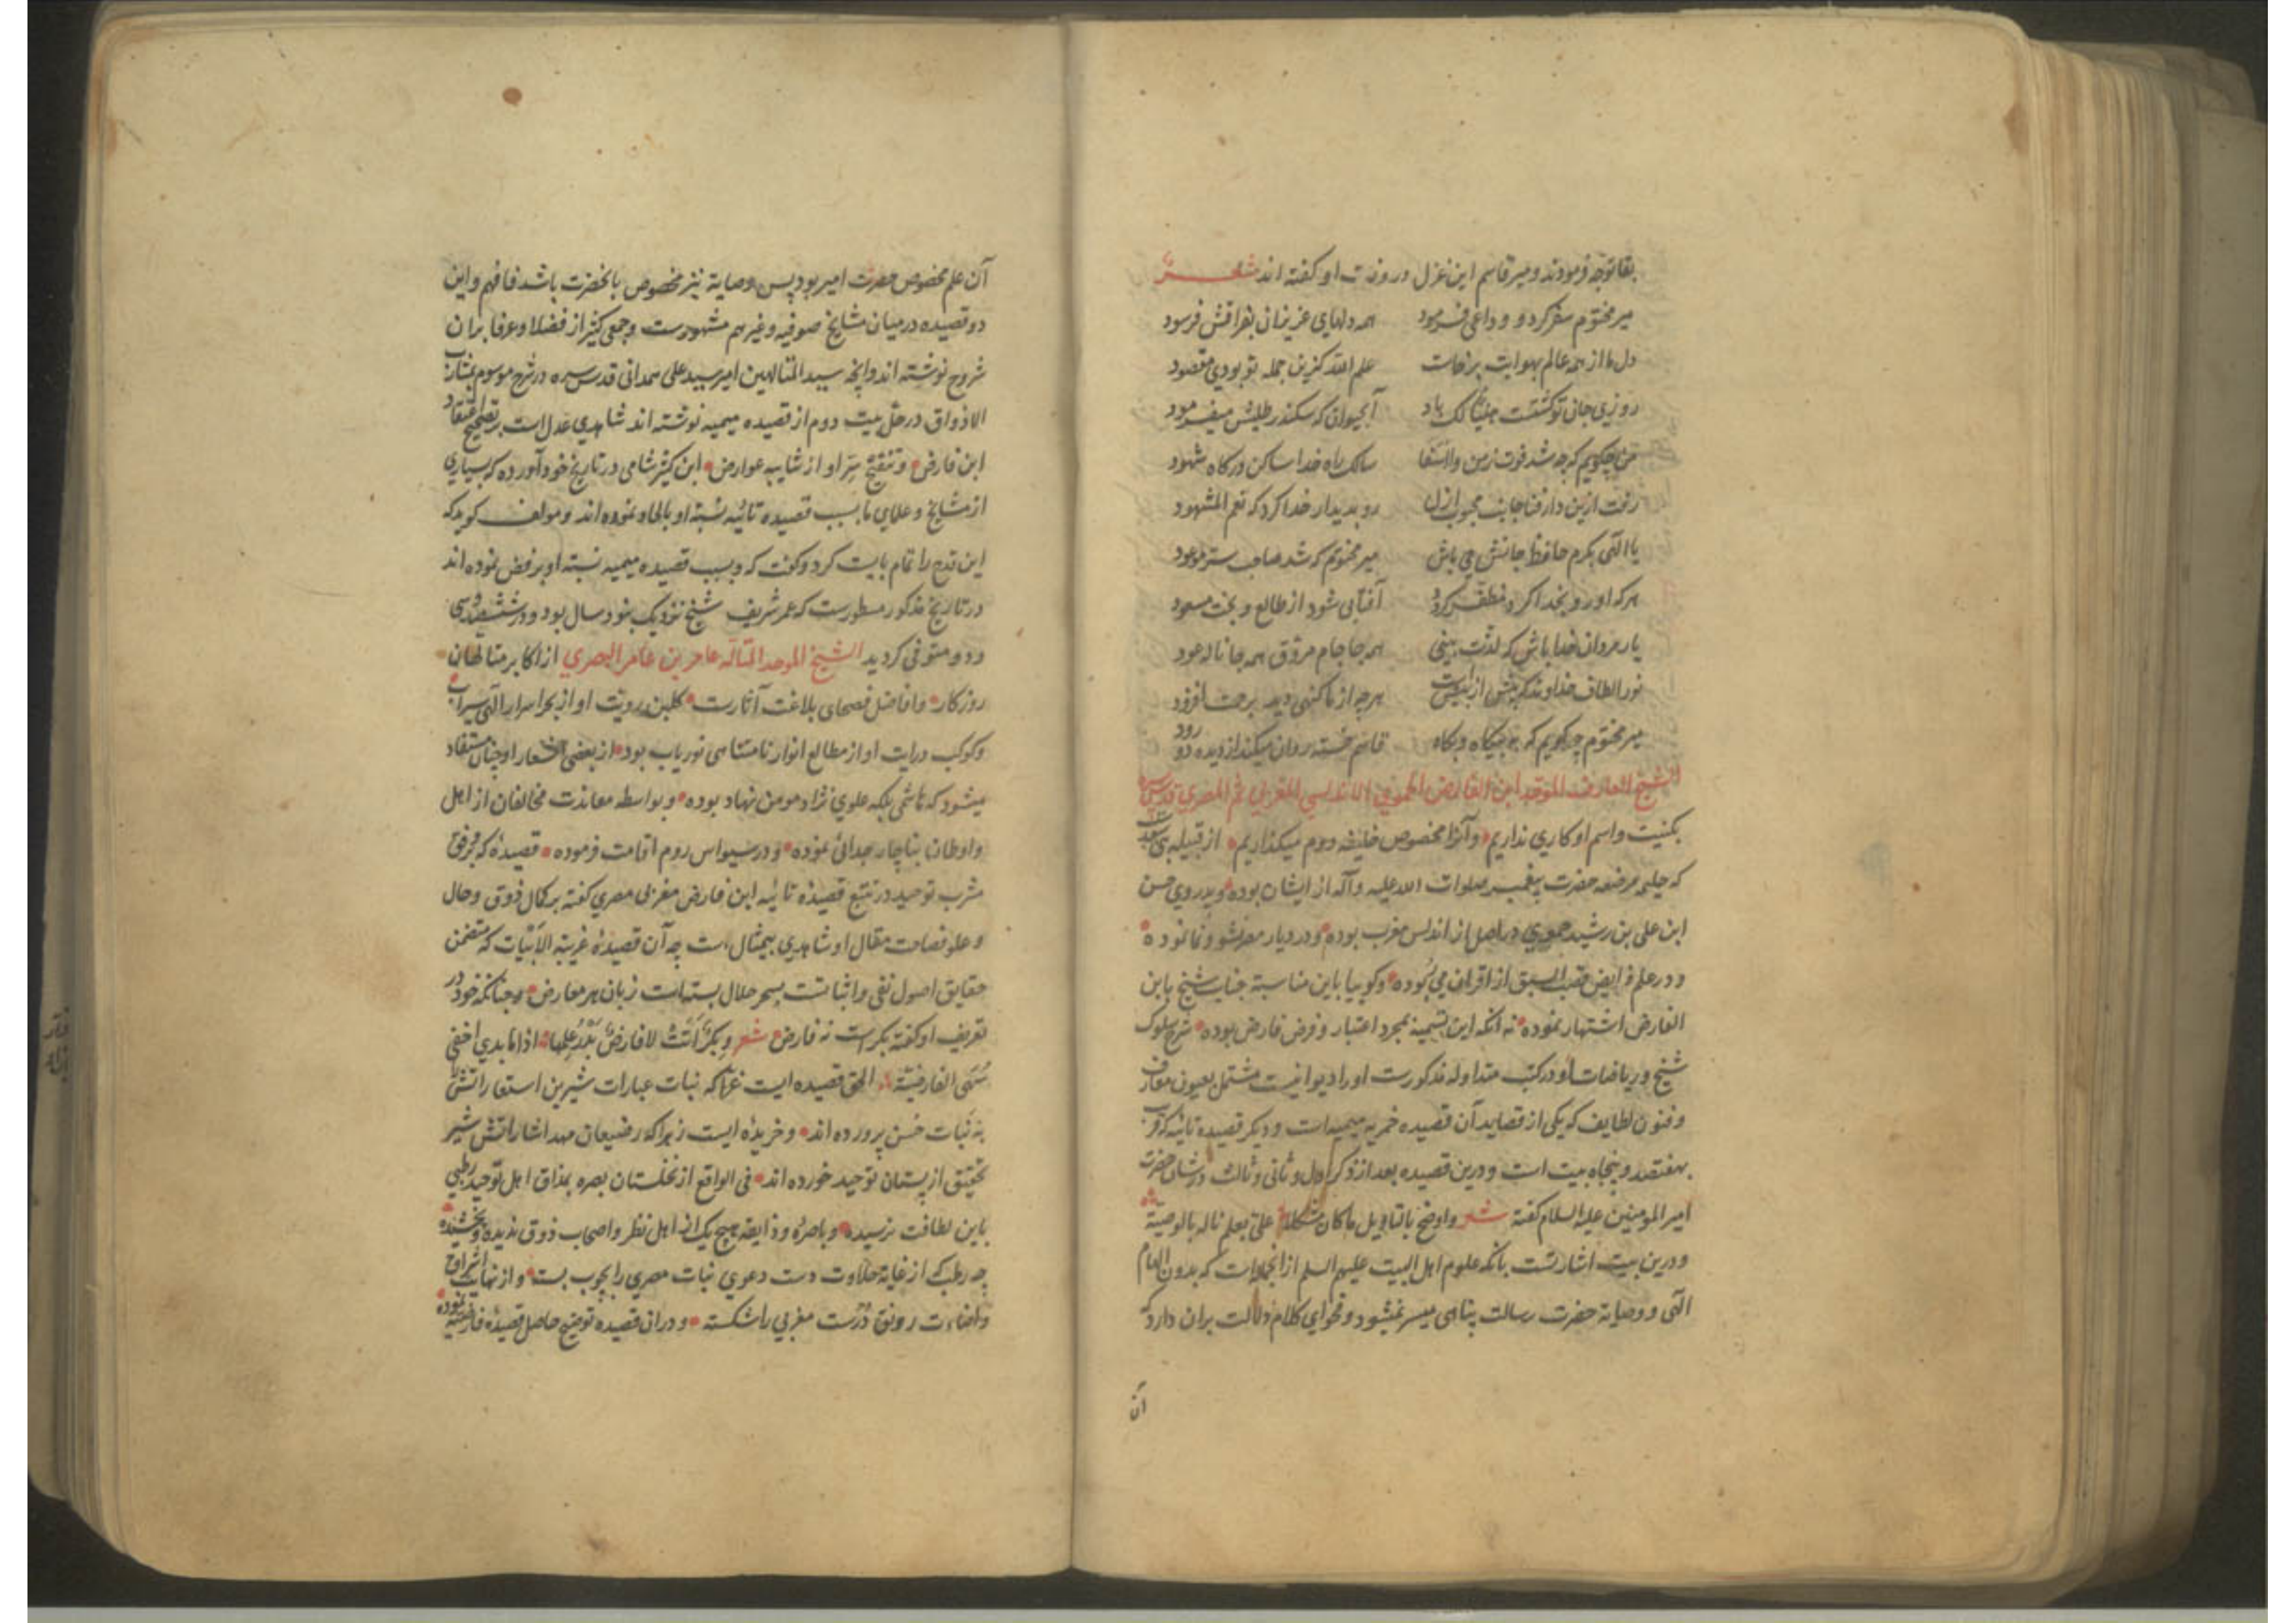 بقا توجه فرمودند و میر قاسم این غزل در وفات او گفته اند شعر
میر مختوم سفر کرد و وداعی فرمود همه دلهای عزیزان بفراقش فرسود
دل ما از همه عالم بهوایت برخاست علم الله کزین جمله تو بودی مقصود
روزی جان تو گشتت هنیئا لک باد آبحیوان که سکندر طلبش میفرمود
من چکویم که چه شد فوت ز من وا اسفا سالک راه خدا ساکن درکاه شهود
رفت ازین دار فنا جانب محبوب ازل رو بدیدار خدا کرد که نعم المشهود
یا الهی بکرم حافظ جانش می باش میر مختوم که شد صاحب ستر موعود
هر که او رو بخدا کرد مظفر کردد آفتابی شود از طالع و بخت مسعود
یار مردان خدا باش که لذت بینی همه جا جام مروق همه جا ناله عود
نور الطاف خداوند هر چه از ما کنهی دید برحمت افزود
میر مختوم چه کویم که به بیکاه و بکاه قاسم خسته روان میکند از دیده دو رود
الشیخ العارف الموحد ابن الفارض الحموی الاندلسی المغربی ثم المصری قدس سره
بکنیت و اسم او کاری نداریم و آنرا مخصوص خلیفه دوم میکذاریم از قبیله بنی سعد
که حلیمه مرضعه حضرت پیغمبر صلوات الله علیه و آله از ایشان بوده و پدر وی حسن
ابن علی بن رشید حموی در اصل از اندلس مغرب بوده و در دیار مصر نشو و نما نموده
و در علم فرایض قصب السبق از اقران می ربوده و کوییا باین مناسبة جناب شیخ بابن
الفارض اشتهار نموده نه آنکه این تسمیه بمجرد اعتبار و فرض فارض بوده شرح سلوک
شیخ و ریاضات او در کتب متداوله مذکورست او را دیوانیست مشتمل بعیون معارف
و فنون لطایف که یکی از قصاید آن قصیده خمریه میمیه است و دیکر قصیده تائیه که قرب
بهفتصد و پنجاه بیت است و درین قصیده بعد از ذکر اول و ثانی و ثالث در شان حضرت
امیر المومنین علیه السلام کفته شعر و اوضح بالتاویل ما کان مشکلا علی بعلم ناله بالوصیة
و درین بیت اشارتست بانکه علوم اهل البیت علیهم السلم از انجمله است که بدون الهام
الهی و وصایة حضرت رسالت پناهی میسر نمیشود و فحوای کلام دلالت بران دارد که
آن
آن علم مخصوص حضرت امیر بود پس وصایة نیز مخصوص بانحضرت باشد فافهم و این
دو قصیده در میان مشایخ صوفیه و غیرهم مشهورست و جمعی کثیر از فضلا و عرفا بران
شروح نوشته اند و آنچه سید المتالهین امیر سید علی همدانی قدس سره در شرح موسوم بمشارب
الاذواق در حل بیت دوم از قصیده میمیه نوشته اند شاهدی عدل است بر تصحیح اعتقاد
ابن فارض و تنقیح سر او از شایبه عوارض ابن کثیر شامی در تاریخ خود آورده که بسیاری
از مشایخ و علمای ما بسبب قصیده تائیه نسبة او بالحاد نموده اند و مولف کوید که
این قدح را تمام بایست کرد و کفت که و بسبب قصیده میمیه نسبة او برفض نموده اند
در تاریخ مذکور مسطورست که عمر شریف شیخ نزدیک بنود سال بود و در ششصد و سی
و دو متوفی کردید الشیخ الموحد المتاله عامر بن عامر البصری از اکابر متالهان
روزکار و افاضل فصحای بلاغت آثارست کلبن رویت او از بحر اسرار الهی سیراب
و کوکب درایت او از مطالع انوار نامتناهی نوریاب بود از بعضی اشعار او چنان مستفاد
میشود که هاشمی بلکه علوی نژاد مومن نهاد بوده و بواسطه معاندت مخالفان از اهل
و اوطان بناچار جدائی نموده و در سیواس روم اقامت فرموده قصیدۀ که بر وفق
مشرب توحید در تتبع قصیدۀ تائیه ابن فارض مغربی مصری کفته بر کمال ذوق و حال
و علو فصاحت مقال او شاهدی بیمثال است چه آن قصیدۀ غریبة الابیات که متضمن
حقایق اصول نفی و اثباتست بسحر حلال بسته است زبان هر معارض و چنانکه خود در
تعریف او کفته بکرست نه فارض شعر و بکر اتت لا فارض اذا ما بدی اخفی
سنی الفارضیة الحق قصیده ایست غرا که نبات عبارات شیرین استعاراتش
به نبات حسن پرورده اند و خریدۀ ایست زهرا که رضیعان مهد اشاراتش شیر
تحقیق از پستان توحید خورده اند فی الواقع از نخلستان بصره بمذاق اهل توحید رطبی
باین لطافت نرسیده و باصره و ذایقه هیچ یک از اهل نظر و اصحاب ذوق ندیده و نچشیده
چه رطب که از غایة حلاوت دست دعوی نبات مصری را بچوب بست و از نهایت اشراق
و اضاءت رونق درست مغربی را شکسته و در ان قصیده توضیح حاصل قصیدۀ فارضیه نموده